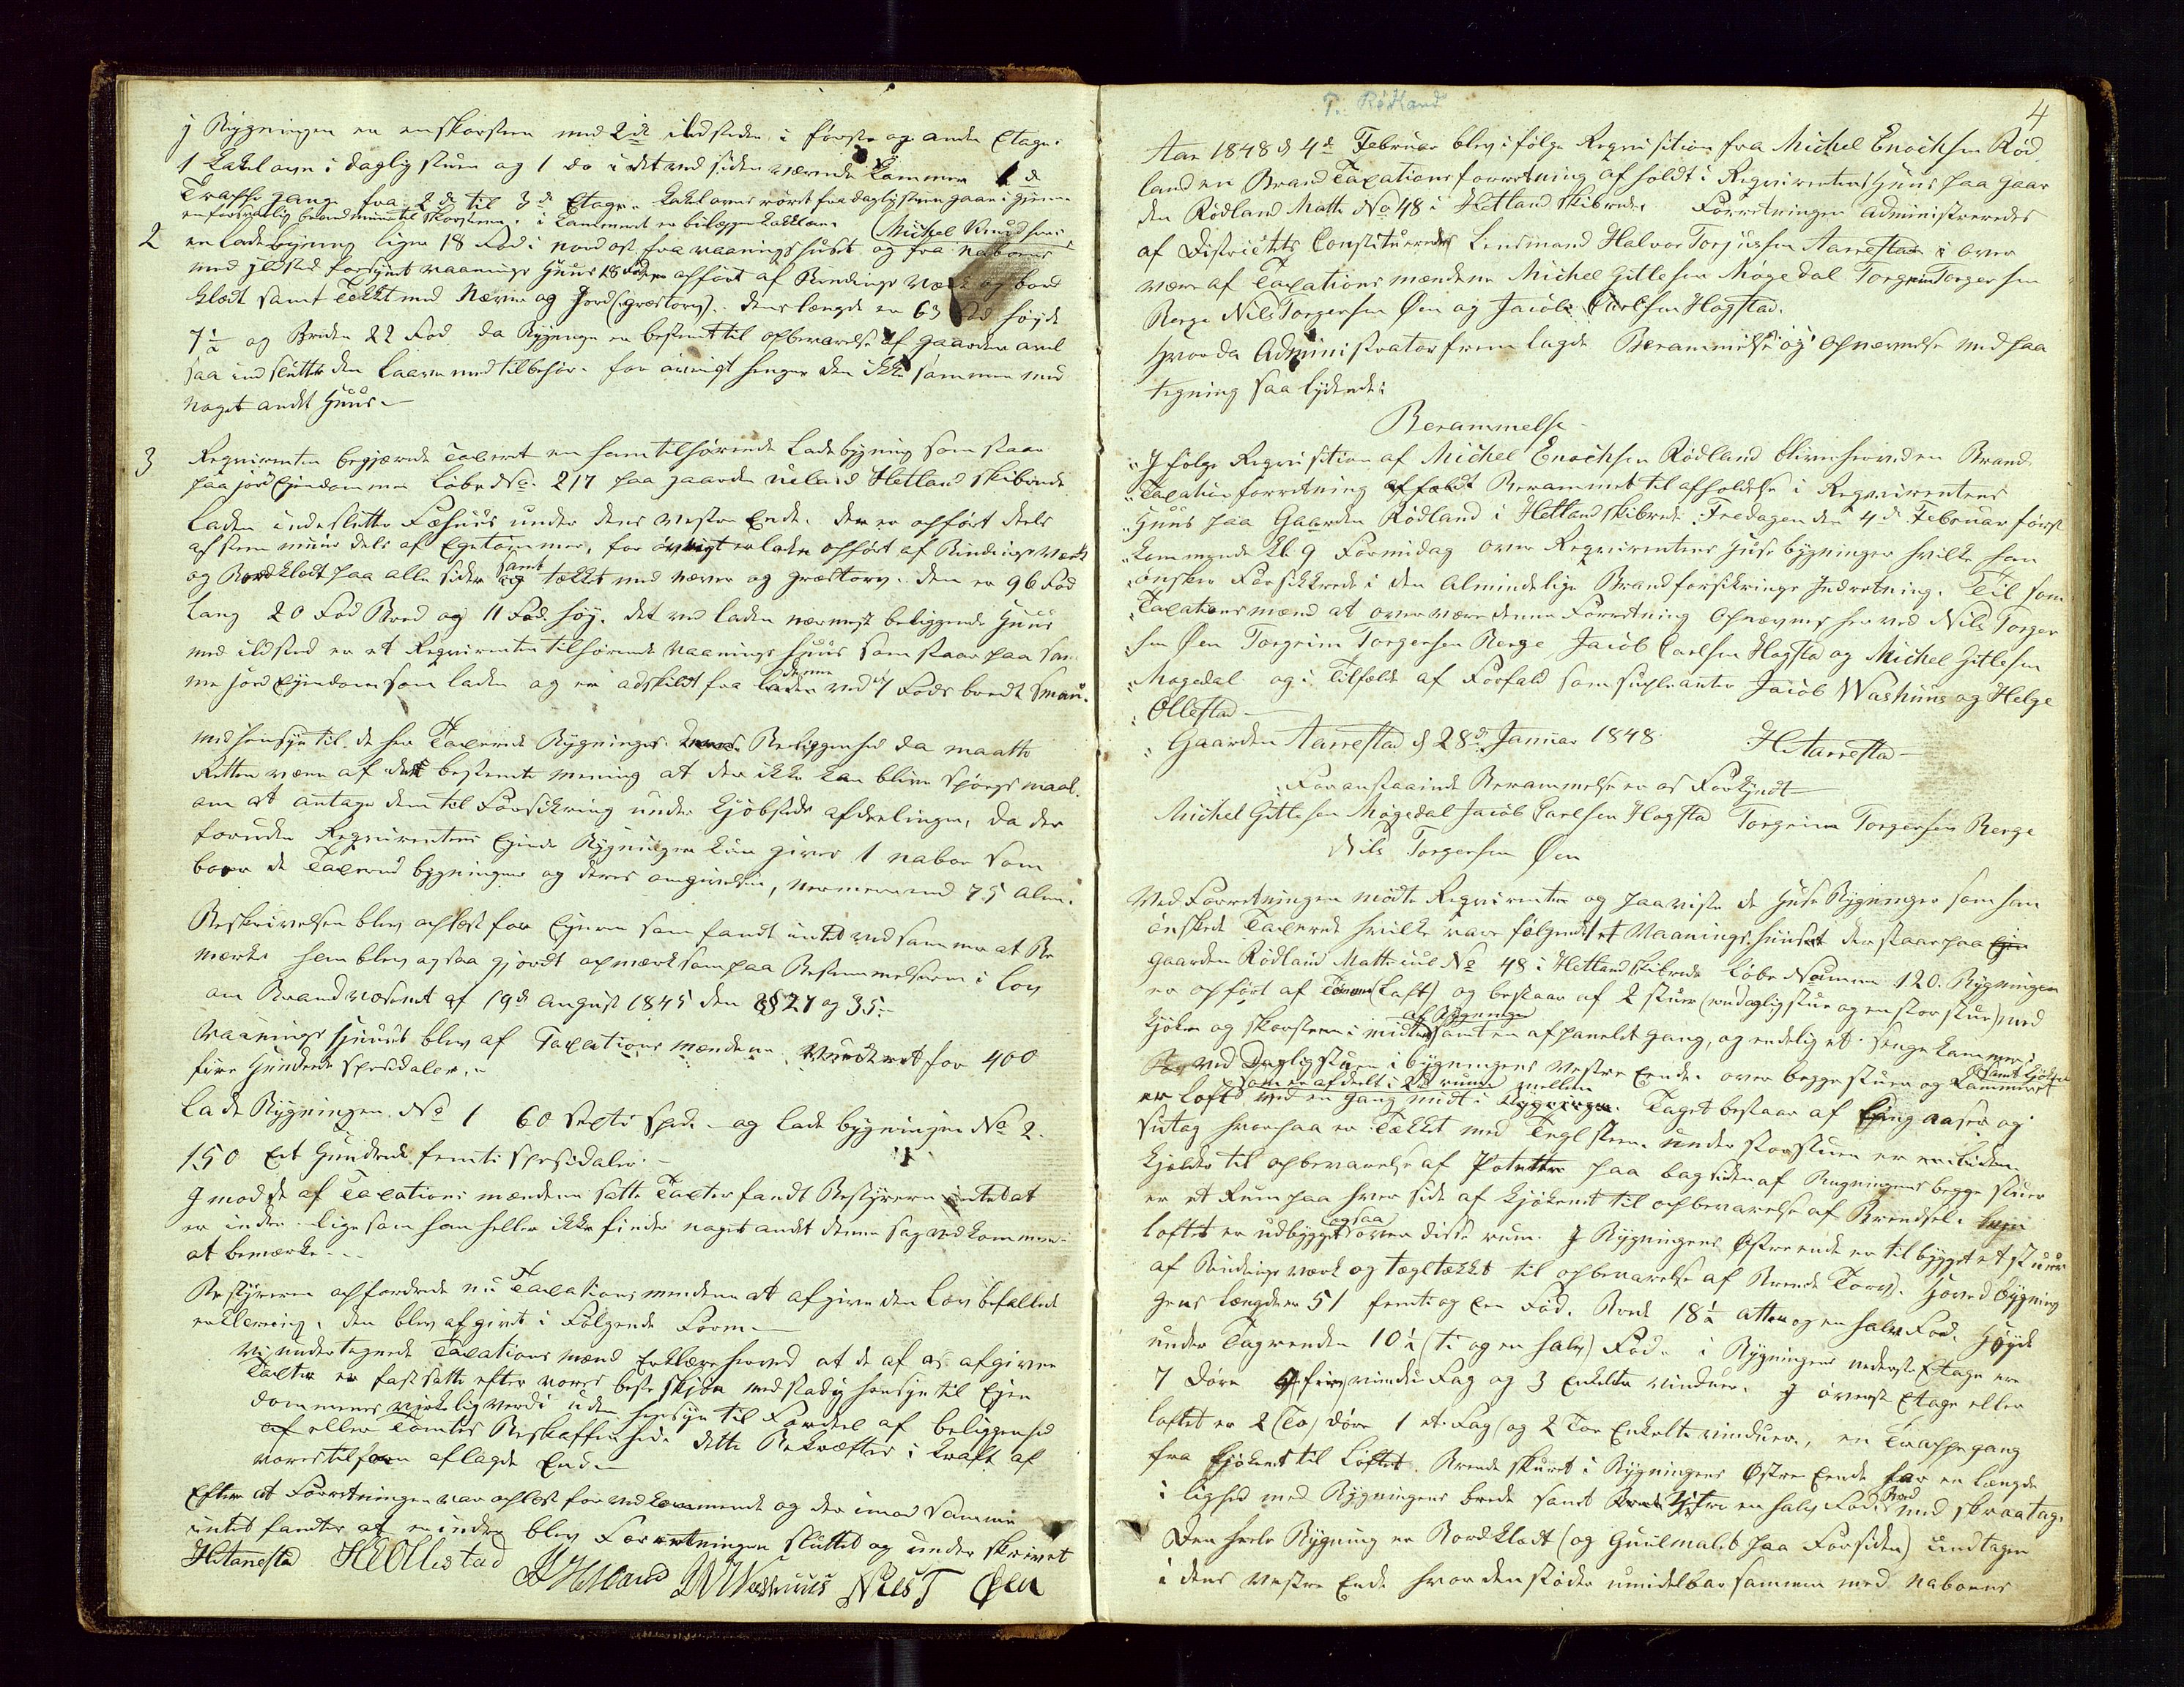 i Bygningen er en skorsteen med 2de ildsteder i første og anden Etage.
1 kakelovn i daglig stuen og 1 do i det ved siden værende kammer 1
Trappe gange fra 2de til 3de Etage. kakelovns rørt fra daglig stuen gaar igjennem
en forsvarlig brandmuur til skorsteenen i kammeret er bilægger kakelovn. (Michel Knudsens
2 en ladebygning ligger 18 Fod i nord ost fra vaaningshuset og fra naboens
med ildsted forsynt vaanings Huus 18 Fod opført af Bindings Værk og bord
klædt samt Tekket med Næver og Jord (Græstorv). dens længde er 63 Fod høyde
7½ og Brede 22 Fod da Bygningen er bestemt til opbevarelse af gaardens avl
saa indslutter den laave med tilbehør. for øvrigt henger den ikke sammen med
noget andet Huus.
3 Reqvirenten begjærede Taxeret en ham tilhørende ladebygning som staar
paa jord Ejendommen Løbe No 217 paa gaarden i Hetland skibrede
laden indeslutter Fæhuus under dens vestre Ende. den er opført deels
af steen muur dels af Egetømmer, for øvrigt er laden opført af Bindingsværk
og Bordklædt paa alle sider samt tækket med næver og græstorv. den er 96 Fod
lang 20 Fod Bred og 11 Fod høy. det ved laden nærmest beliggende Huus
med ildsted er et Reqvirenten tilhørende Vaanings Huus som staar paa sam
me jord Ejendom som laden og er adskilt fra denne ved 7 Fods bredt Smau.
med hensyn til de her Taxerede Bygningers Beliggenhed da maatte
Retten være af den bestemte mening at der ikke kan blive spørgsmaal
om at antage dem til Forsikring under Kjøbsteds afdelingen, da der
foruden Reqvirentens Egende Bygninger kun gives 1 naboe som
boer de Taxerede bygninger og deres omgivelser, nærmere end 75 Alen.
Beskrivelsen blev oplæst for Ejeren som fandt intet ved samme at Be
mærke han blev ogsaa gjordt opmerksom paa Bestemmelserne i Lov
om Brandvæsenet af 19de August 1845 den §§ 27 og 35.
Vaanings Huuset blev af Taxations mændene Vurderet for 400
fire Hundrede spesidaler.
Lade Bygningen No 1 60 sexti spd. og lade bygningen No 2.
150 Et Hundrede femti spesidaler.
I mod de af Taxations mændene satte Taxter fandt Bestyreren intet at
er indre. ligesom han heller ikke finder noget andt denne sag vedkommen
at bemærke.
Bestyreren opfordrede nu Taxations mændene at afgive den lov befallede
erklæring, den blev afgivet i Følgende Form
Vi undertegnede Taxations mænd Erklære herved at de af os afgivne
Taxter er fastsatte efter vores beste skjøn med stadig hensyn til Ejen
dommenes virkelig verdi uden hensyn til Fordeel af beliggenhed
af eller Tomtes Beskaffenhed. dette Bekræftes i kraft af
vores tilforn aflagde Eed.
Efter at Forretningen var oplæst for vedkommende og der imod samme
intet fandtes at erindre blev Forretningen sluttet og under skrevet
HAarrestad HEOllestad Hetland JWWashuus Niels T Øen
P. Rødland
4
Aar 1848 d 4de Februar blev ifølge Reqvisition fra Michel Enochsen Rød
land en Brand Taxationsforretning afholdt i Reqvirentens Huus paa gaar
den Rødland Matte No 48 i Hetland skibrede. Forretningen administreredes
af Districtets Constituerede Lensmand Halvor Torjussen Aarrestad i over
være af Taxations mændene Michel Gitlesen Møgedal Torgrim Torgersen
Berge Nils Torgersen Øen og Jacob Carlsen Hogstad.
Hvorda Administrator frem lagde Berammelse og Opnevnelse med paa
tegning saa lydende:
Berammelse
"I følge Reqvisition af Michel Enochsen Rødland bliver herved en Brand
"Taxation forretning Berammet til afholdelse i Reqvirentens
"Huus paa Gaarden Rødland i Hetland skibrede Fredagen den 4de Februar først
"kommende kl. 9 Formidag over Reqvirentens Huse bygninger hvilke han
"ønsker Forsikkrede i den Almindelige Brandforsikrings Indretning. Til som
"Taxationsmænd at overvære denne Forretning Opnævnes herved Nils Torger
"sen Øen Torgrim Torgersen Berge Jacob Carlsen Hogstad og Michel Gitlesen
"Møgedal og i Tilfælde af Forfald som supleanter Jacob Washuus og Helge
"Ollestad
"Gaarden Aarrestad d 28de Januar 1848. HAarrestad
Foranstaaende Berammelse er os Forkyndt
Michel Gitlesen Møgedal Jacob Carlsen Hogstad Torgrim Torgersen Berge
Nils Torgersen Øen
Ved Forretningen mødte Reqvirenten og paaviste de Huse Bygninger som han
ønskede Taxerede hvilke vare følgende et Vaanings huus der staar paa
gaarden Rødland Matte No 48 i Hetland skibrede Løbe Numer 120. Bygningen
er opført af Tømmer (Laft) og bestaar af 2 stuer (en dagligstue og en stor stue) med
kjøken og skorsteen i midten af Bygningen samt en afpanelt gang, og endelig et senge kammer
ved Dagligstuen i bygningens Vestre Eende. over begge stuer og kammeret samt kjøken
er loft som er afdeelt i 2de rum mellem ved en gang midt i Bygningen. Taget bestaar af aaser og
sutag hvorpaa er Tækket med Teglsteen. under storstuen er en liden
kjelder til opbevarelse af Poteter paa bagsiden af Bygningens begge stuer
er et Rum paa hver side af kjøkenet til opbevarelse af Brendsel.
loftet er udbygget ogsaa over disse rum. I Bygningens Østre ende er tilbygget et skuur
af Bindingsværk og tægltækket til opbevarelse af Brende Torv. Hoved bygnin
gens længde er 51 femti og een Fod. Brede 18½ Atten og en halv Fod. Høyde
under Tagrenden 10½ (ti og en halv) Fod. i Bygningens nederste Etage ere
7 Døre 4 (fire) vindu Fag og 3 Enkelte vinduer. I øverste Etage eller
loftet er 2 (To) døre 1 et Fag og 2 Toe Enkelte vinduer, en Trappegang
fra kjøkenet til Loftet. Brende skuret i Bygningens Østre Eende har en længde
i lighed med Bygningens brede samt en halv Fods Bred med skraatag.
Den heele Bygning er Bordklædt (og Guulmalet paa Forsiden) undtagen
i dens Vestre Ende hvor den støder umidelbar sammen med naboens